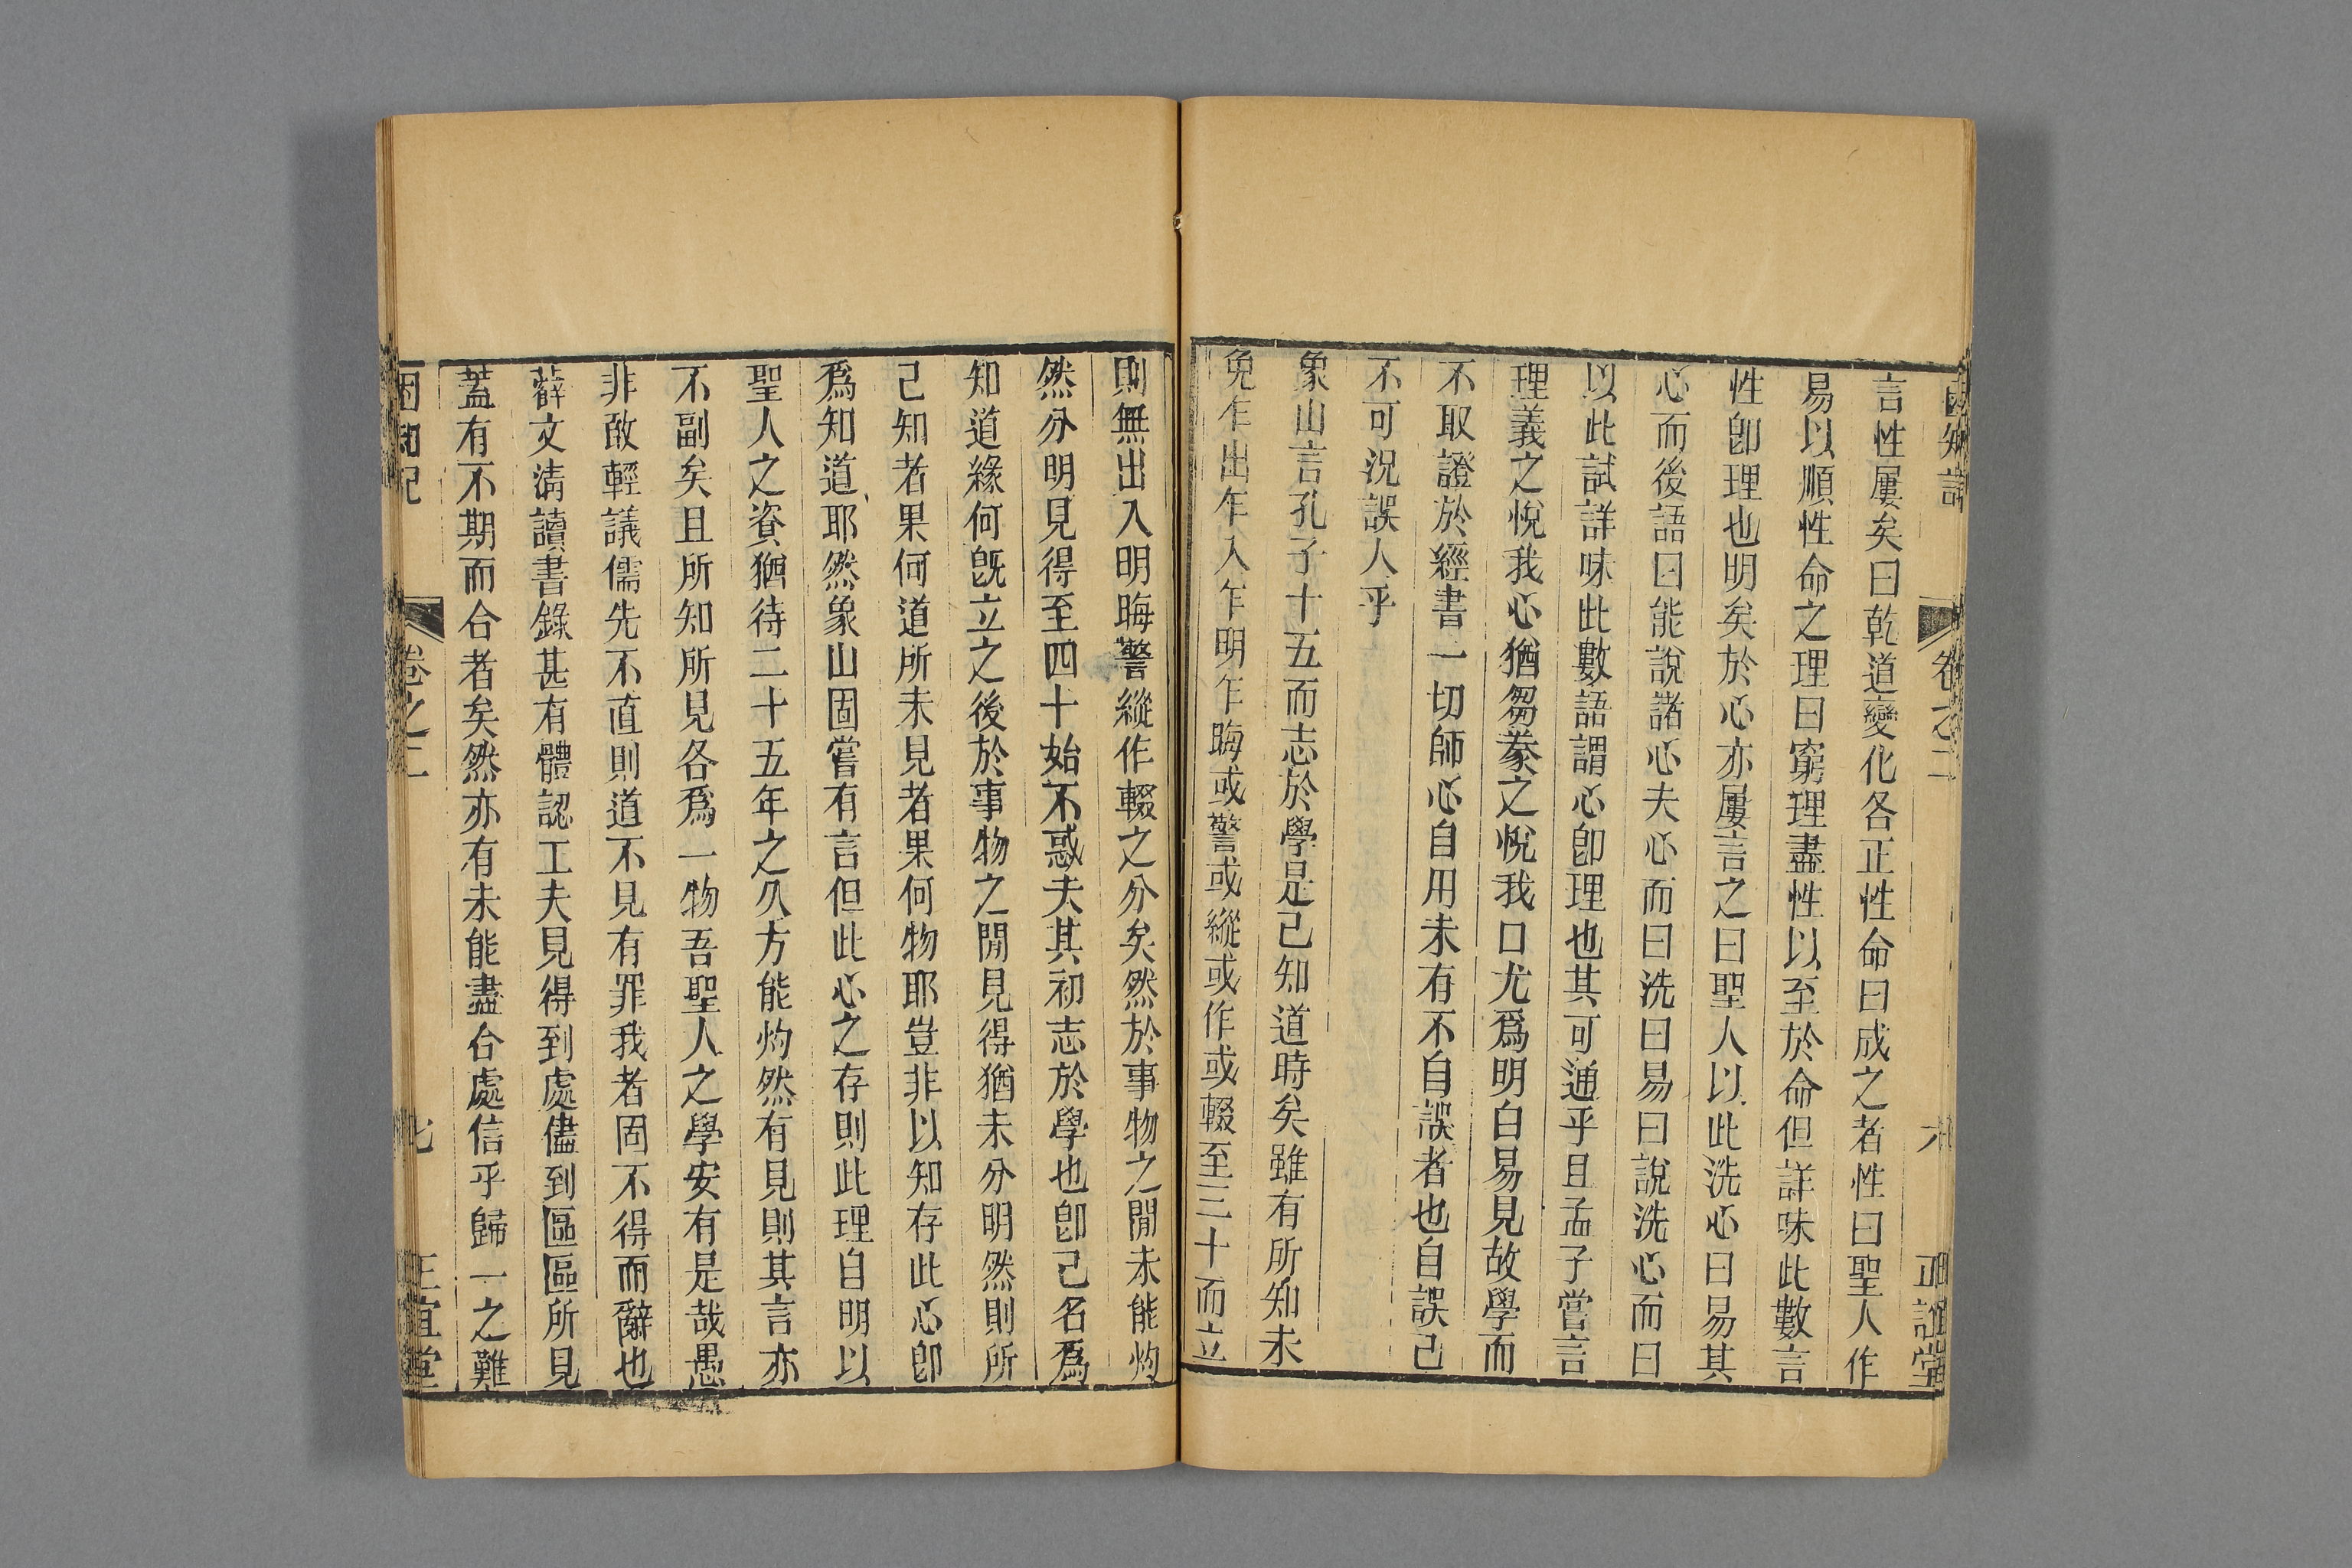 困知記 卷之二 六 正誼堂
言性屢矣曰乾道變化各正性命曰成之者性曰聖人作
易以順性命之理曰窮理盡性以至於命但詳味此數言
性卽理也明矣於心亦屢言之曰聖人以此洗心曰易其
心而後語曰能說諸心夫心而曰洗曰易曰說洗心而曰
以此試詳味此數語謂心卽理也其可通乎且孟子嘗言
理義之悅我心猶芻豢之悅我口尤爲明白易見故學而
不取證於經書一切師心自用未有不自誤者也自誤己
不可況誤人乎
象山言孔子十五而志於學是己知道時矣雖有所知未
免乍出乍入乍明乍晦或警或縱或作或輟至三十而立
則無出入明晦警縱作輟之分矣然於事物之閒未能灼
然分明見得至四十始不惑夫其初志於學也卽己名爲
知道緣何旣立之後於事物之閒見得猶未分明然則所
己知者果何道所未見者果何物耶豈非以知存此心卽
爲知道耶然象山固嘗有言但此心之存則此理自明以
聖人之資猶待二十五年之久方能灼然有見則其言亦
不副矣且所知所見各爲一物吾聖人之學安有是哉愚
非敢輕議儒先不直則道不見有罪我者固不得而辭也
薛文淸讀書錄甚有體認工夫見得到處儘到區區所見
蓋有不期而合者矣然亦有未能盡合處信乎歸一之難
困知記 卷之二 七 正誼堂